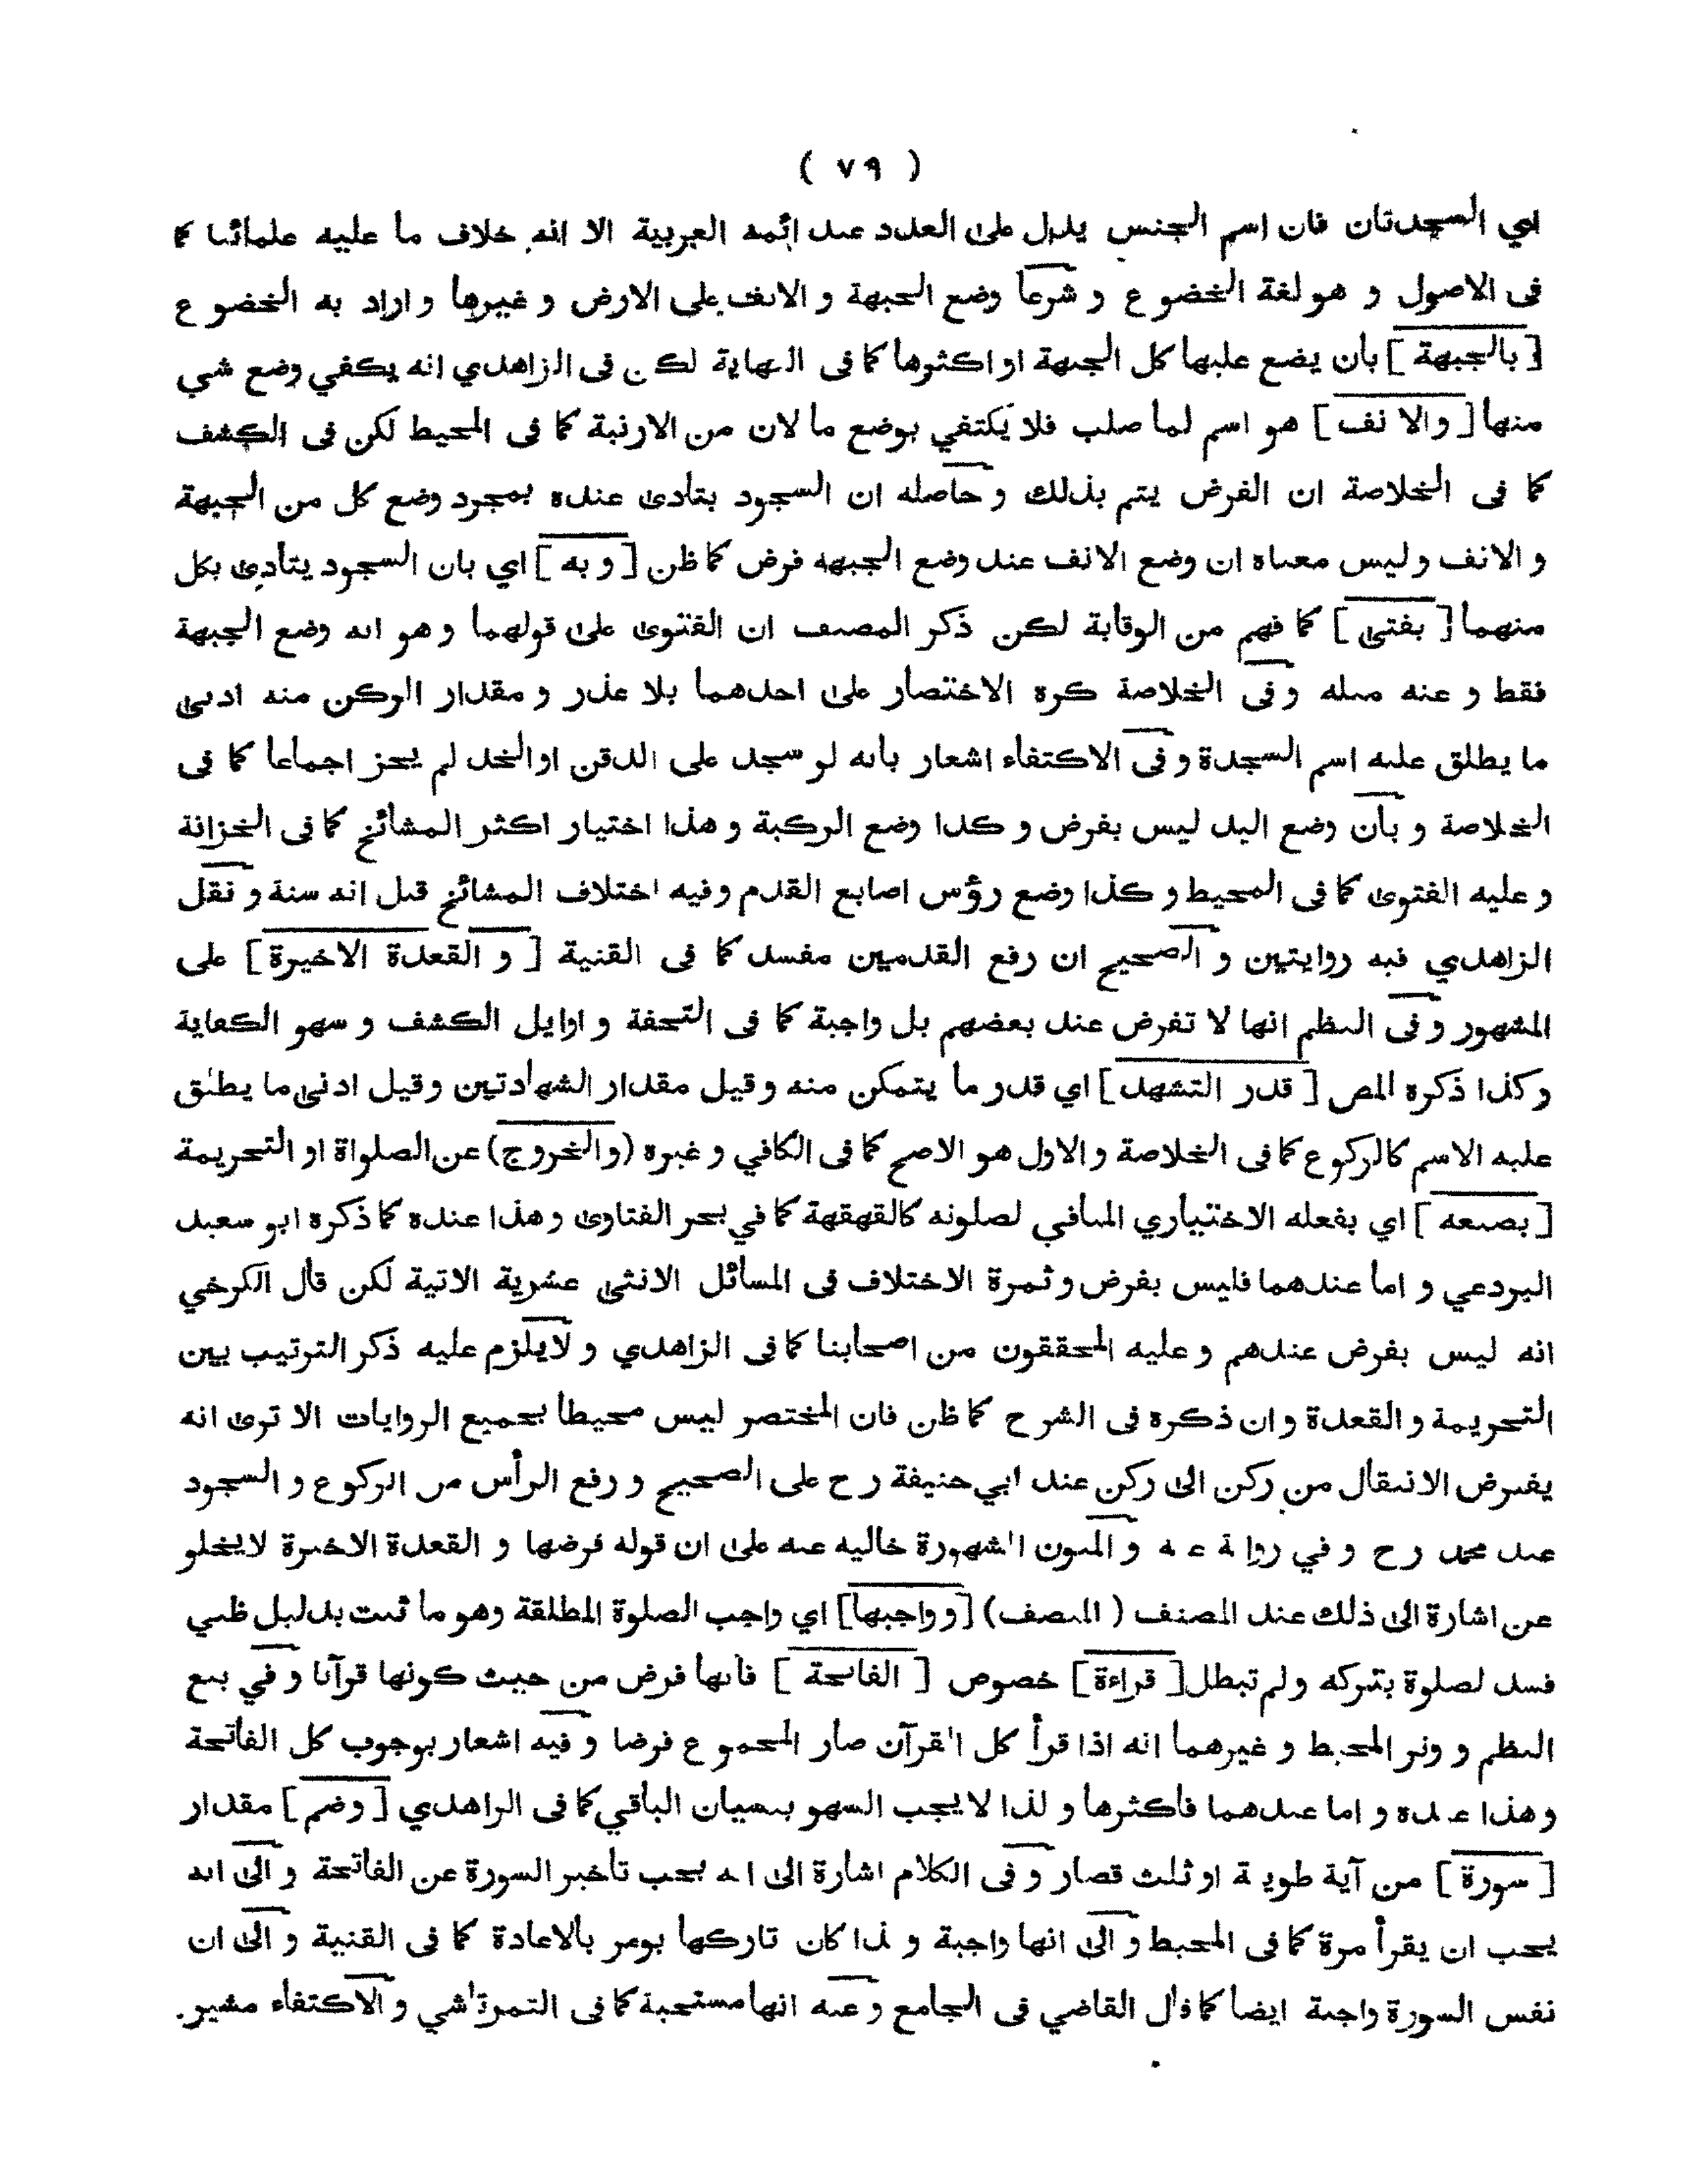 ( ٧٩ )
اي السجدتان فان اسم الجنس يدل على العدد عند ائمة العربية الا انه خلاف ما عليه علمائنا كما
فى الاصول و هو لغة الخضوع و شرعا وضع الجبهة و الانف على الارض و غيرها و اراد به الخضوع
[ بالجبهة ] بان يضع عليها كل الجبهة او اكثرها كما فى النهاية لكن فى الزاهدي انه يكفي وضع شي
منها [ والانف ] هو اسم لما صلب فلا يكتفي بوضع ما لان من الارنبة كما فى المحيط لكن فى الكشف
كما فى الخلاصة ان الفرض يتم بذلك و حاصله ان السجود يتأدى عنده بمجرد وضع كل من الجبهة
و الانف وليس معناه ان وضع الانف عند وضع الجبهة فرض كما ظن [ وبه ] اي بان السجود يتأدى بكل
منهما [ يفتى ] كما فهم من الوقاية لكن ذكر المصنف ان الفتوى على قولهما وهو انه وضع الجبهة
فقط و عنه مثله وفى الخلاصة كره الاختصار على احدهما بلا عذر و مقدار الركن منه ادنى
ما يطلق عليه اسم السجدة وفى الاكتفاء اشعار بانه لو سجد على الذقن اوالخد لم يجز اجماعا كما فى
الخلاصة و بأن وضع اليد ليس بفرض و كذا وضع الركبة و هذا اختيار اكثر المشائخ كما فى الخزانة
و عليه الفتوى كما فى المحيط و كذا وضع رؤس اصابع القدم وفيه اختلاف المشائخ قيل انه سنة و نقل
الزاهدي فيه روايتين و الصحيح ان رفع القدمين مفسد كما فى القنية [ و القعدة الاخيرة ] على
المشهور وفى النظم انها لا تفرض عند بعضهم بل واجبة كما فى التحفة و اوايل الكشف و سهو الكفاية
وكذا ذكره المص [ قدر التشهد ] اي قدر ما يتمكن منه وقيل مقدار الشهادتين وقيل ادنى ما يطلق
عليه الاسم كالركوع كما فى الخلاصة والاول هو الاصح كما فى الكافي و غيره (والخروج) عن الصلواة او التحريمة
[ بصنعه ] اي بفعله الاختياري المنافي لصلوته كالقهقهة كما في بحر الفتاوى وهذا عنده كما ذكره ابو سعيد
البردعي و اما عندهما فليس بفرض و ثمرة الاختلاف فى المسائل الاثنى عشرية الاتية لكن قال الكرخي
انه ليس بفرض عندهم و عليه المحققون من اصحابنا كما فى الزاهدي و لايلزم عليه ذكر الترتيب بين
التحريمة و القعدة و ان ذكره فى الشرح كما ظن فان المختصر ليس محيطا بجميع الروايات الا ترى انه
يفترض الانتقال من ركن الى ركن عند ابي حنيفة رح على الصحيح و رفع الرأس من الركوع و السجود
عند محمد رح و في رواية عنه و المتون المشهورة خاليه عنه على ان قوله فرضها و القعدة الاخيرة لايخلو
عن اشارة الى ذلك عند المصنف ( المنصف) [ وواجبها ] اي واجب الصلوة المطلقة وهو ما ثبت بدليل ظني
فسد لصلوة بتركه ولم تبطل [ قراءة ] خصوص [ الفاتحة ] فانها فرض من حيث كونها قرآنا وفي بيع
النظم و وتر المحيط و غيرهما انه اذا قرأ كل القرآن صار المجموع فرضا وفيه اشعار بوجوب كل الفاتحة
وهذا عنده و اما عندهما فاكثرها و لذا لايجب السهو بنسيان الباقي كما فى الزاهدي [ وضم ] مقدار
[ سورة ] من آية طويلة او ثلث قصار وفى الكلام اشارة الى انه يجب تأخير السورة عن الفاتحة والى انه
يجب ان يقرأ مرة كما فى المحيط والى انها واجبة و لذا كان تاركها يومر بالاعادة كما فى القنية و الى ان
نفس السورة واجبة ايضا كما قال القاضي فى الجامع و عنه انها مستحبة كما فى التمرتاشي و الاكتفاء مشير.